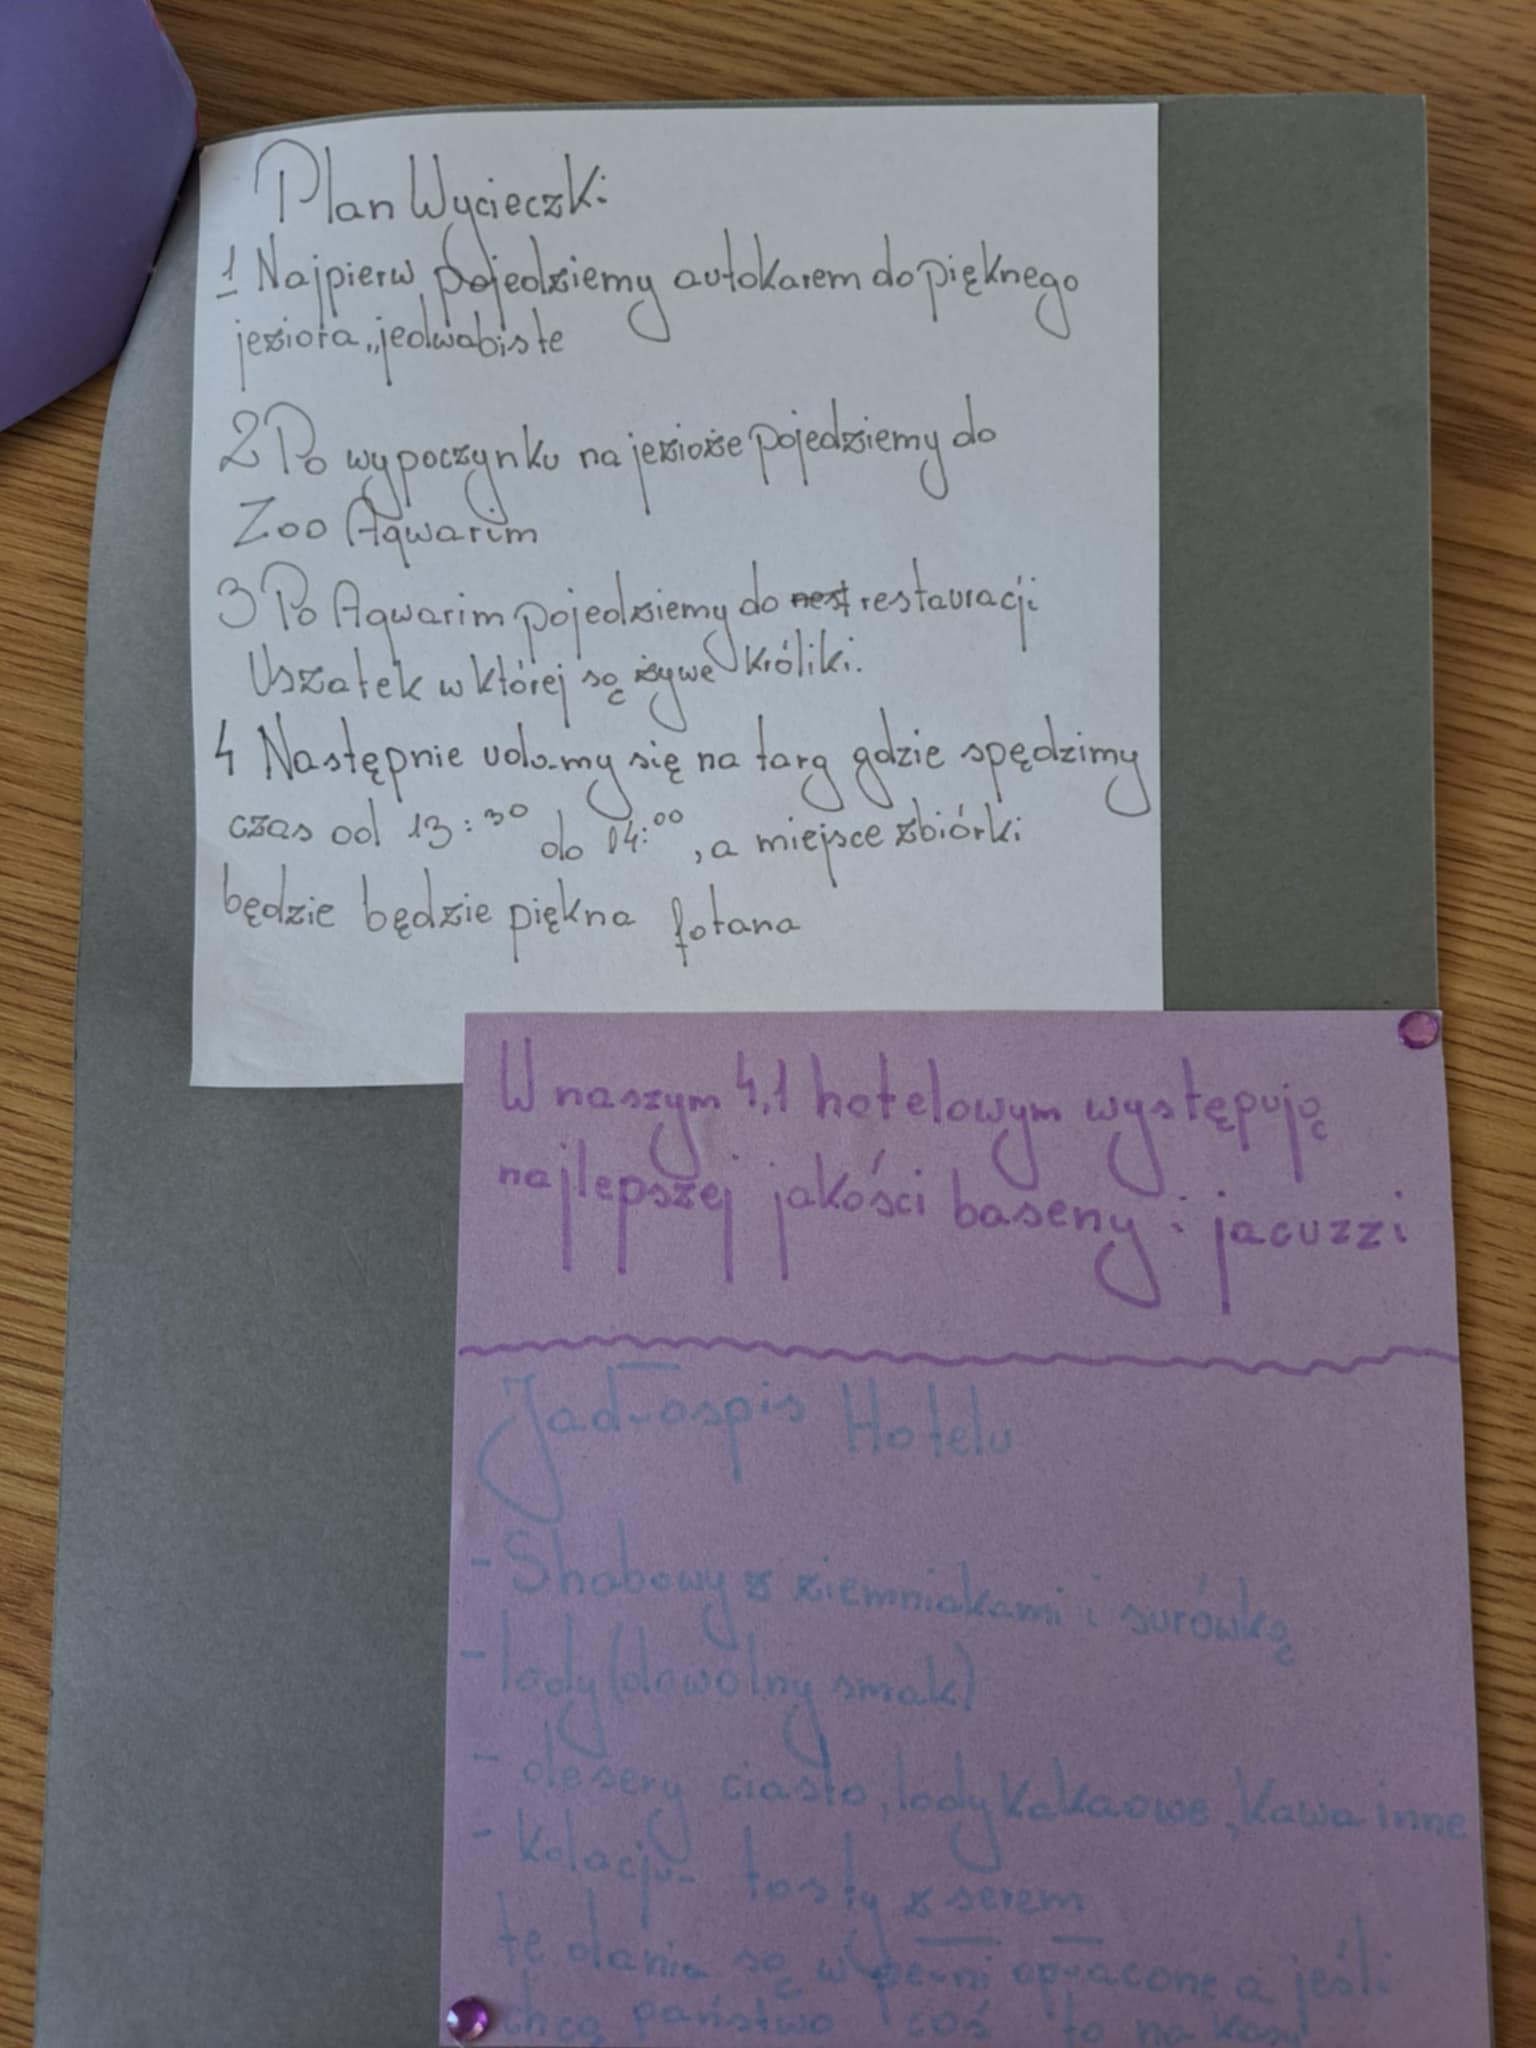 Plan Wycieczki
1 Najpierw pojedziemy autokarem do pięknego
jeziora „jedwabiste
2 Po wypoczynku na jezioże pojedziemy do
Zoo Aqwarim
3 Po Aqwarim pojedziemy do rest restauracji
Uszatek w której są żywe króliki.
4 Następnie udamy się na targ gdzie spędzimy
czas od 13:30 do 14:00, a miejsce zbiórki
będzie będzie piękna fotana
W naszym 4,1 hotelowym występują
najlepszej jakości baseny i jacuzzi
Jadrospis Hotelu
- Shabowy z ziemniakami i surówką
- lody (dowolny smak)
- desery ciasto, lody kakaowe, kawa inne
- kolacja - tosty z serem
te dania są w perni opracone a jeśli
chcą państwo coś to na